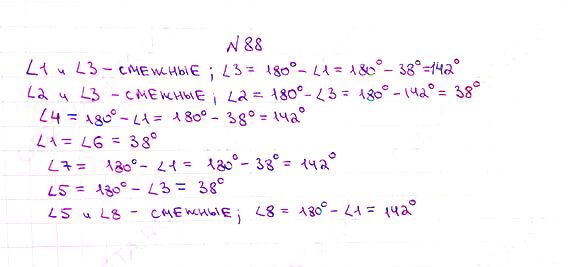 N 88
∠1 и ∠3 – смежные; ∠3 = 180° – ∠1 = 180° – 38° = 142°
∠2 и ∠3 – смежные; ∠2 = 180° – ∠3 = 180° – 142° = 38°
∠4 = 180° – ∠1 = 180° – 38° = 142°
∠1 = ∠6 = 38°
∠7 = 180° – ∠1 = 180° – 38° = 142°
∠5 = 180° – ∠3 = 38°
∠5 и ∠8 – смежные; ∠8 = 180° – ∠1 = 142°